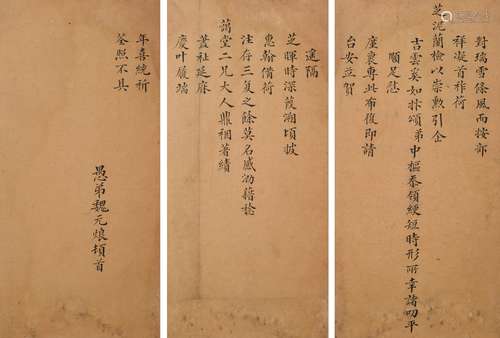 對瑞雪條風而按部
祥凝首祚荷
芝泥蘭檢以崇勳引企
吉雲奚如抃頌弟中樞忝領綆短時形所幸諸叨平
順足慰
廑裏專此布復即請
台安並賀
遙隔
芝暉時深葭溯頃披
惠翰備荷
注存三復之餘莫名感泐藉稔
藹堂二兄大人鼎祵著績
藎社延庥
慶叶履端
年喜統祈
荃照不具
愚弟魏元烺頓首